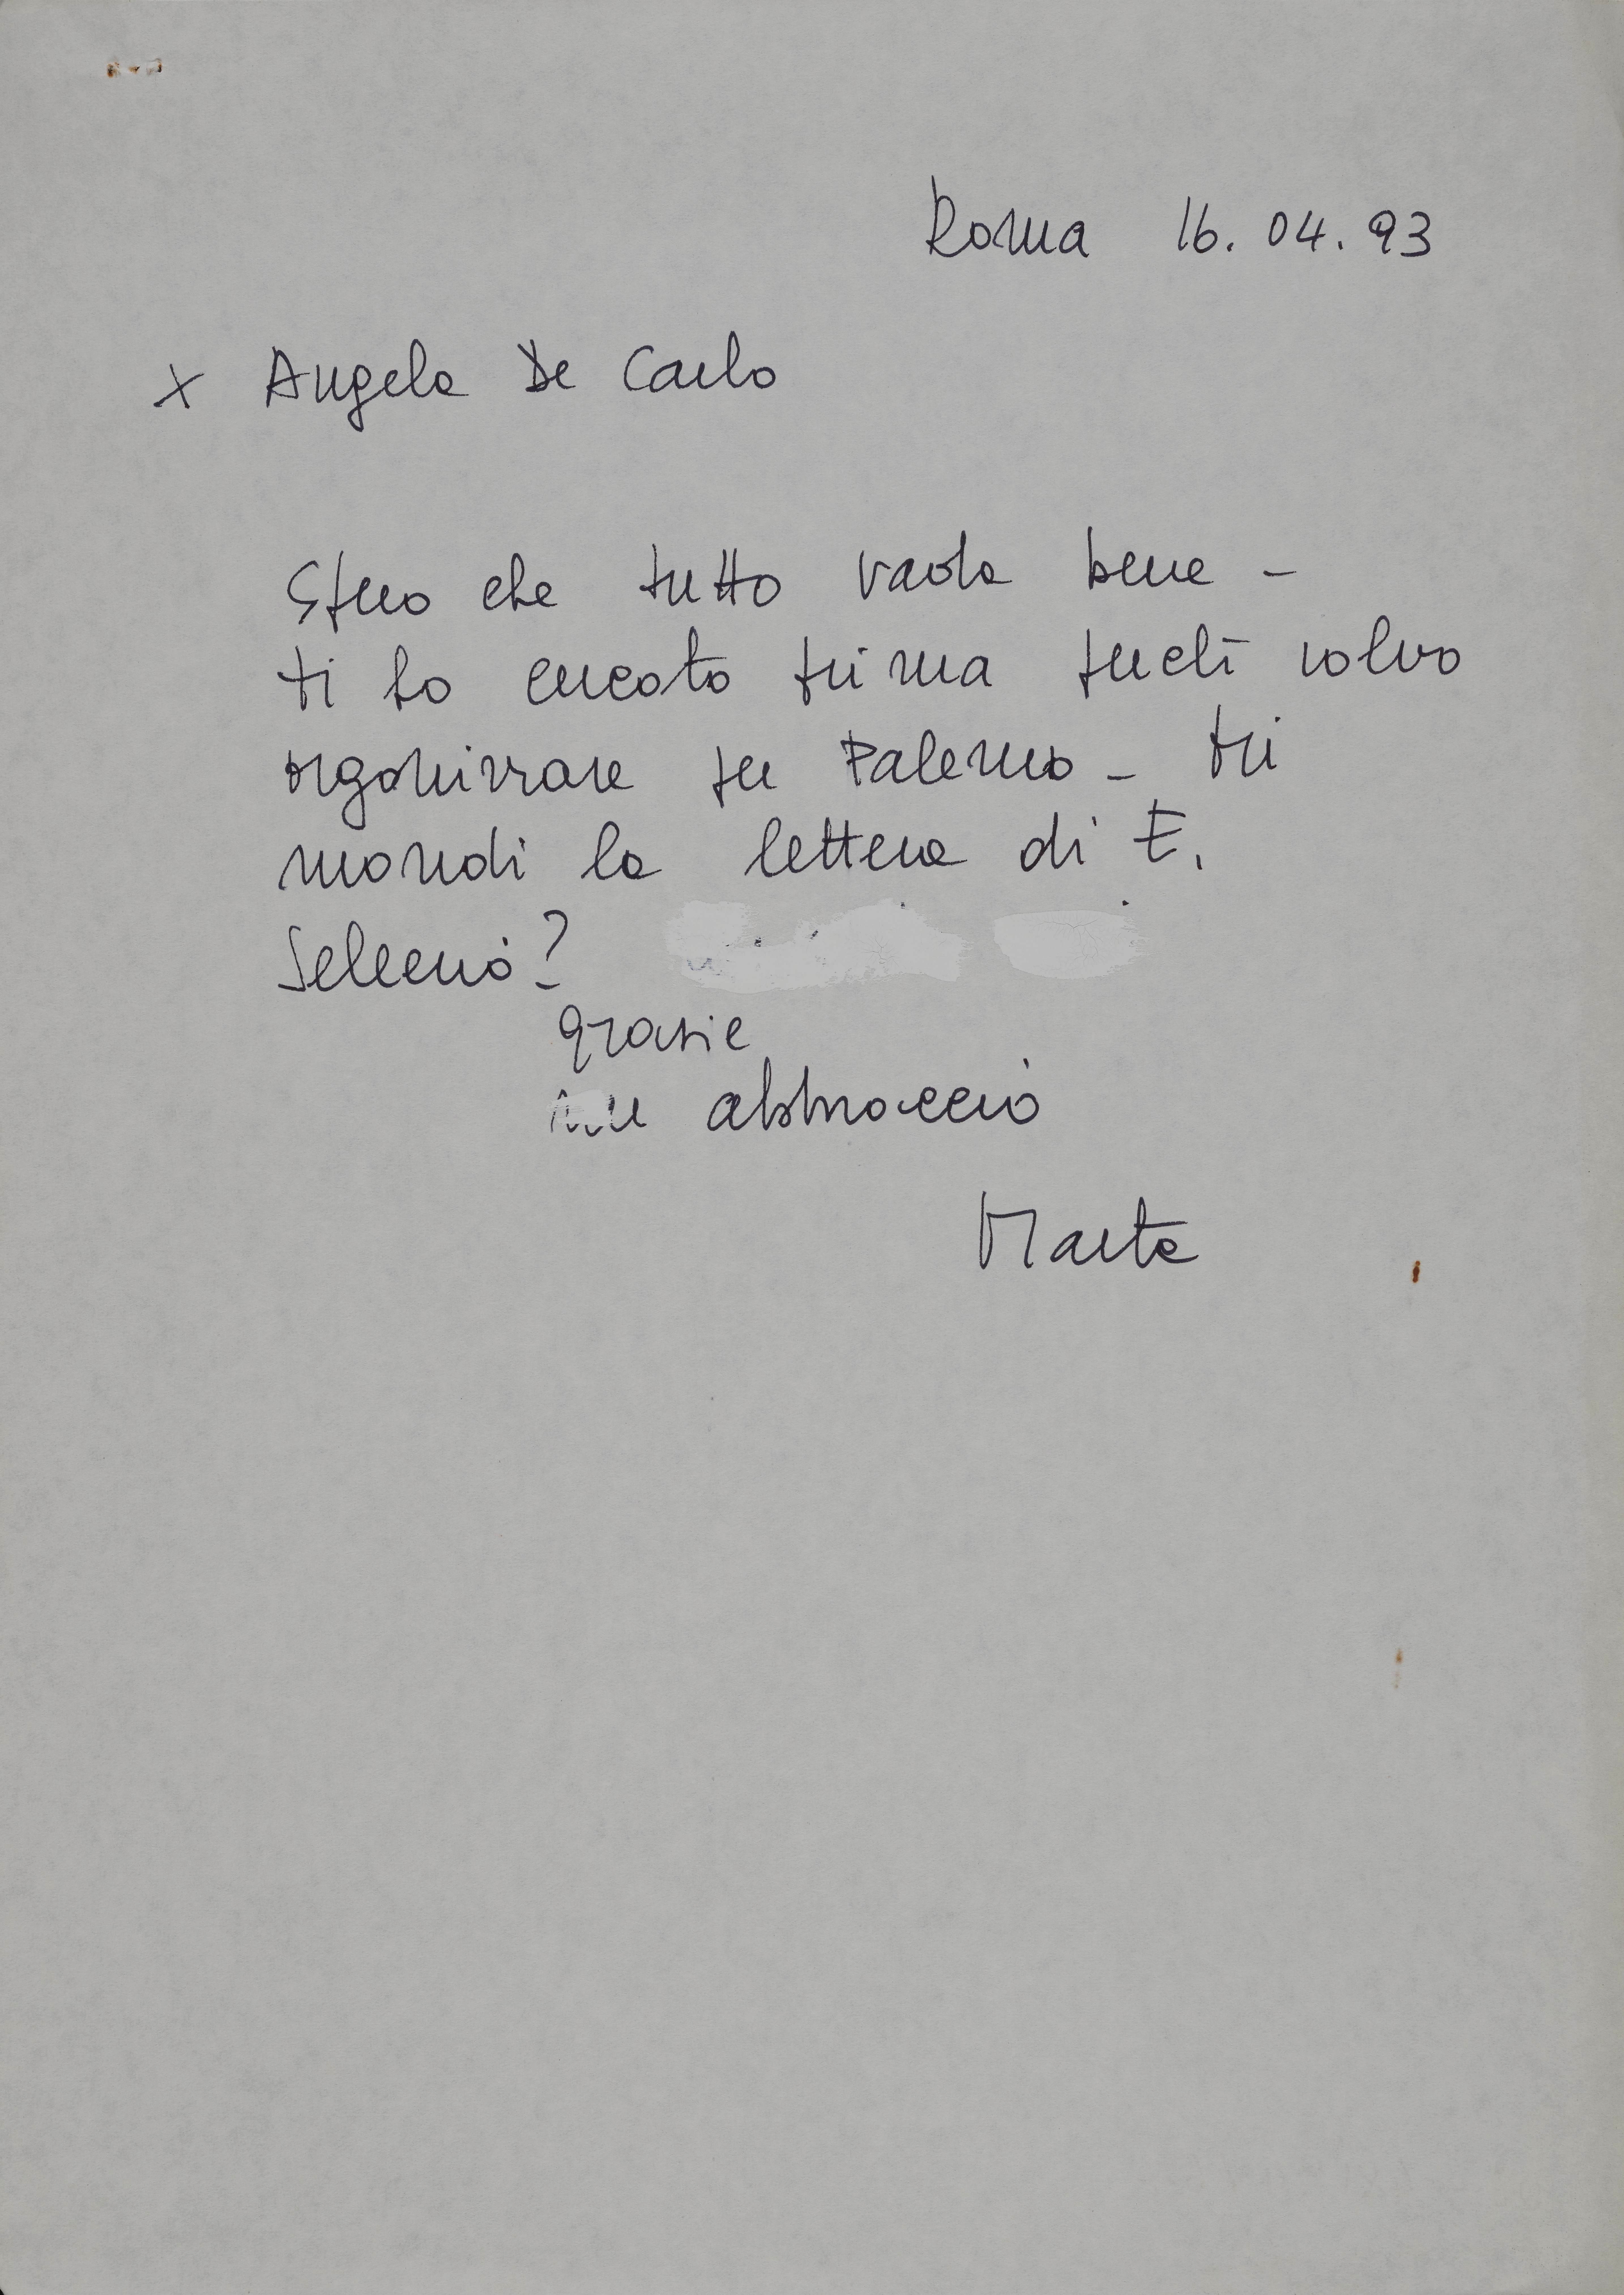 Roma 16.04.93
x Angela De Carlo
Spero che tutto vada bene -
ti ho cercato prima perchè volevo
organizzare per Palermo -
mandi la lettera di E.
Sellerio?
grazie
un abbraccio
Marta